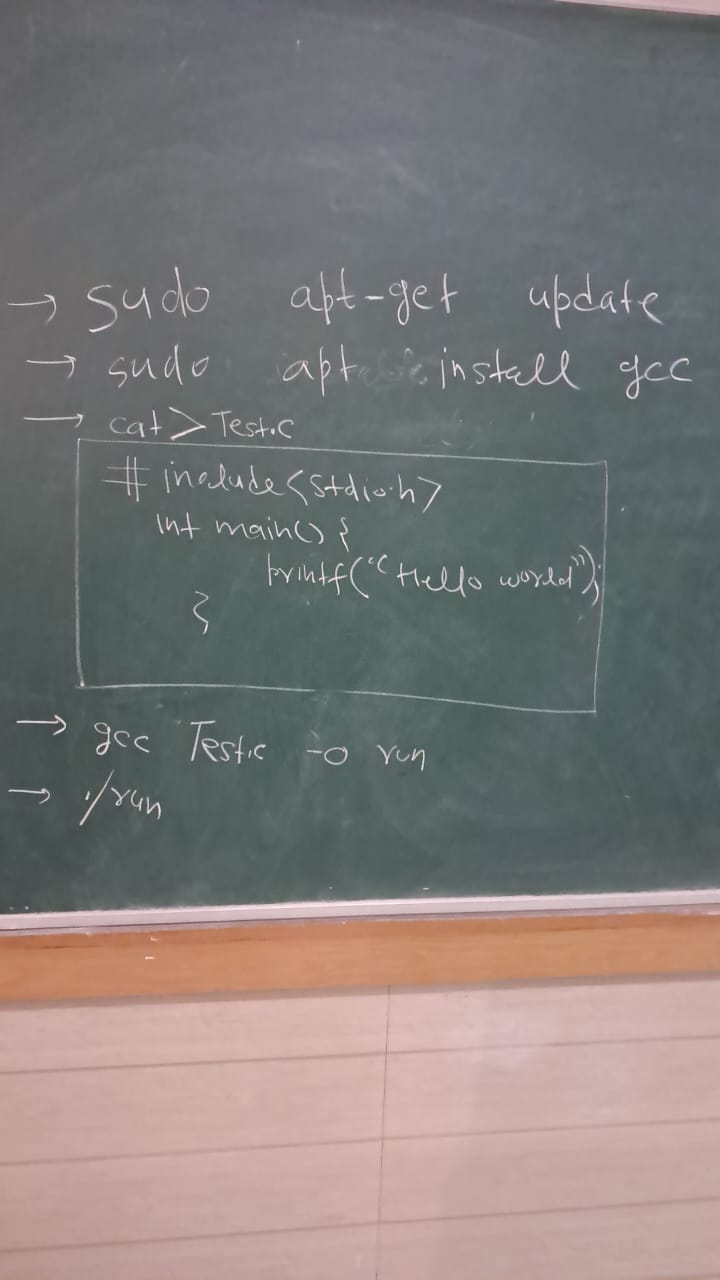 → sudo apt-get update
→ sudo apt install gcc
→ cat > Test.c
# include <stdio.h>
int main() {
printf("Hello world");
}
→ gcc Test.c -o run
→ ./run